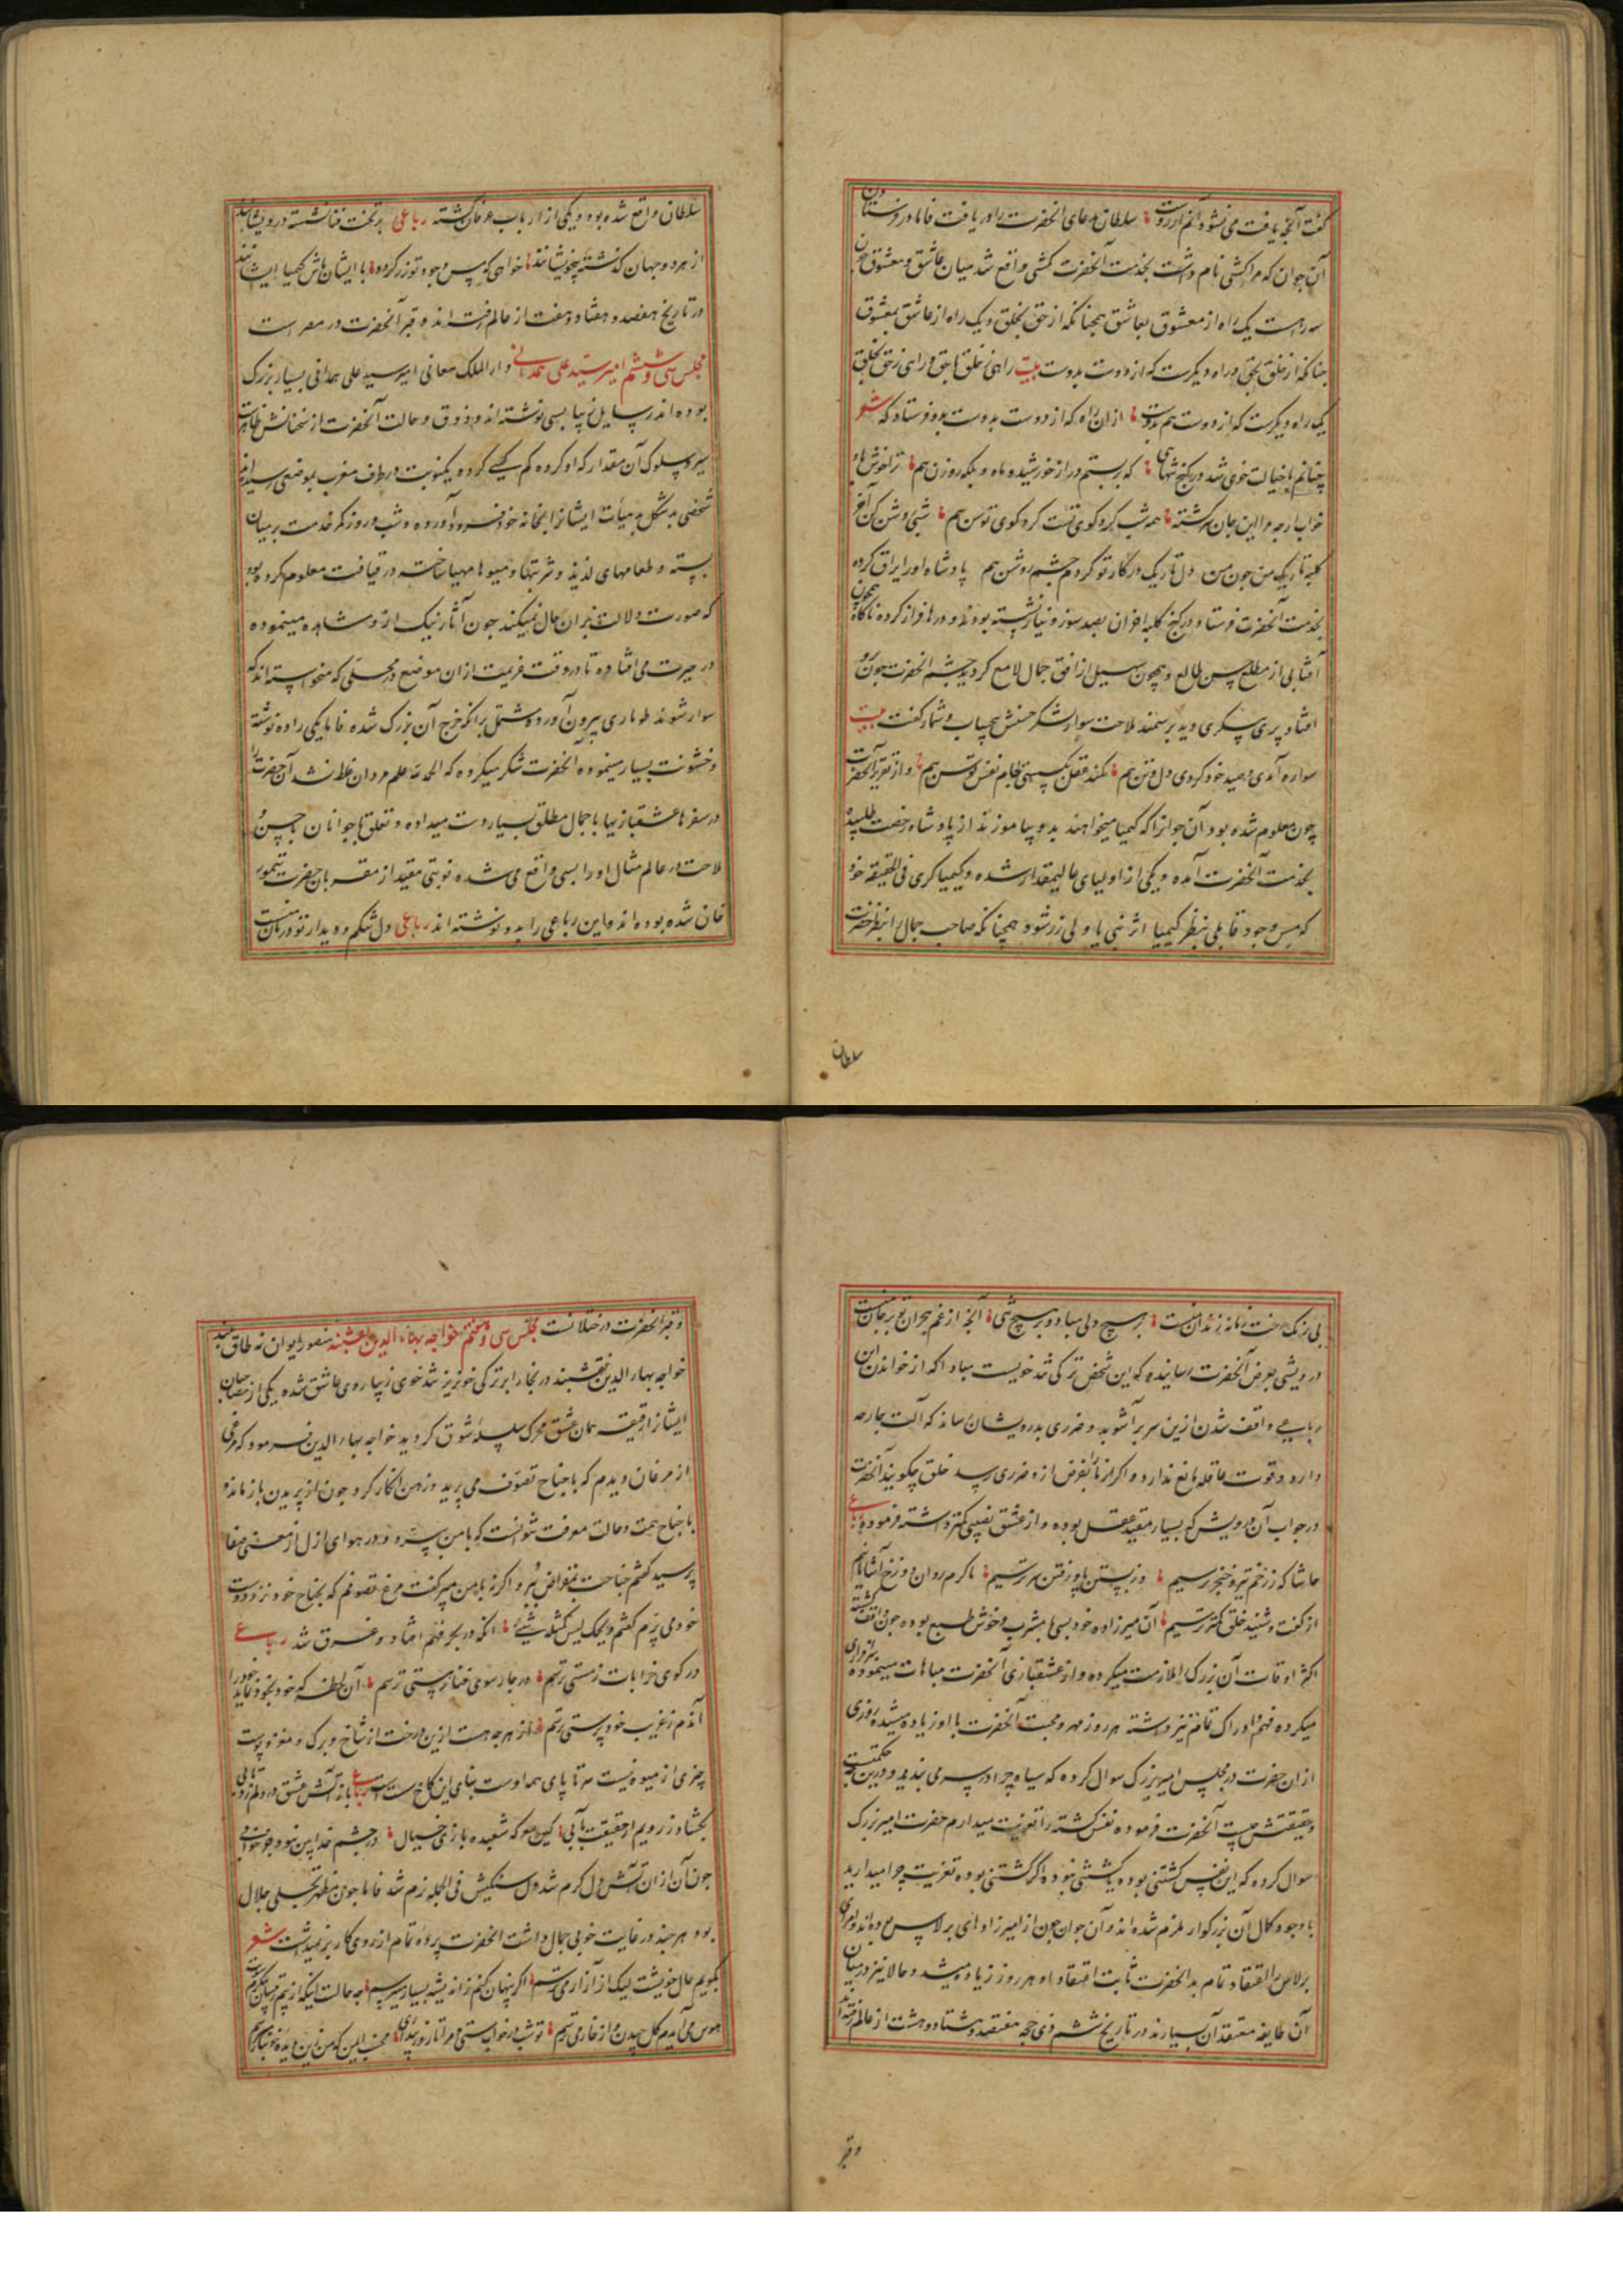 گفت آنچه یافت می نشود آنم آرزوست سلطان مدعای آنحضرت را دریافت فاما در فرستادن
آن جوان که مراکشی نام داشت بخدمت آنحضرت کششی واقع شد میان عاشق و معشوق چون
سه راهست یک راه از معشوق بعاشق همچنانکه از حق بخلق و یک راه از عاشق بمعشوق
چنانکه از خلق بحق و راه دیگرست که از دوست بدوست بیت راهی ز خلق تا بحق و راهی ز حق بخلق
یک راه دیگرست که از دوست هم بدوست از ان راه که از دوست بدوست بدو فرستاد که شعر
چنانم با خیالت خوی شد در کنج تنهایی که بربستم در از خورشید و ماه و بلکه روزن هم
خواب ار چه و این جان سرکشته همه شب کرد کوی تست کرد کوی توسن هم شبی روشن کن آخر
کلبه تاریک من چون من دل تاریک در کار تو کردم چشم روشن هم پادشاه او را یراق کرده
بخدمت آنحضرت فرستاد در کنج کلبه احزان بصد سوز و نیاز نشسته بود و درها فراز کرده ناکاه همچون
آفتابی از مطلع حسن طالع و همچون سهیل از افق جمال لامع کردید چشم آنحضرت چون برو
افتاد پری پیکری دید بر سمند ملاحت سوار لشکر حسنش بیحساب و شمار گفت بیت
سواره آمدی و صید خود کردی دل و تن هم کمند عقل بکسستی لجام نفس توسن هم و از تقریر آنحضرت
چون معلوم شده بود آن جوانرا که کیمیا میخواهند بدو بیاموزند از پادشاه رخصت طلبیده
بخدمت آنحضرت آمده و یکی از اولیای عالیمقدار شده و کیمیا کری فی الحقیقه خود
که مس وجود قابلی بنظر کیمیا اثر نبی یا ولی زر شود همچنانکه صاحب جمال را بنظر حضرت
سلطان
سلطان واقع شده بود و یکی از ارباب عرفان کشته رباعی بر تخت فنا نشسته درویشانند
از هر دو جهان کذشته بیخویشانند خواهی که مس وجود تو زر کردد با ایشان باش کیمیا ایشانند
در تاریخ هفصد و هفتاد و هفت از عالم رفته اند و قبر آنحضرت در مصر است
مجلس سی و ششم امیر سید علی همدانی دار الملک معانی امیر سید علی همدانی بسیار بزرک
بوده اند رسایل زیبا بسی نوشته اند و ذوق و حالت آنحضرت از سخنانش ظاهرست
سیر و سلوک آن مقدار که او کرده کم کسی کرده یکنوبت در طرف مغرب بموضعی رسیده اند
شخصی بد شکل بد هیأت ایشانرا بخانه خود فرود آورده و شب و روز کمر خدمت بر میان
بسته و طعامهای لذیذ و شربتها و میوها مهیا ساخته در قیافت معلوم کرده بود
که صورت دلالت بران حال نمیکند چون آثار نیک ازو مشاهده مینموده
در حیرت می افتاده تا در وقت عزیمت ازان موضع در محلی که میخواسته اند که
سوار شوند طوماری بیرون آورد مشتمل برانکه خرج آن بزرک شده فاما یکی را ده نوشته
و خشونت بسیار مینموده آنحضرت شکر میکرده که الحمد لله علم مردان غلط نشد آن حضرت را
در سفرها عشقبازیها با جمال مطلق بسیار دست میداده و تعلق با جوانان با حسن و
ملاحت در عالم مثال او را بسی واقع می شده نوبتی مقید از مقربان حضرت تیمور
خان شده بوده اند و این رباعی را بدو نوشته اند رباعی دل تنکم و دیدار تو درمان منست
بی رنک رخت زمانه زندان منست بر هیچ دلی مباد و بر هیچ تنی آنچه از غم هجران تو بر جان منست
درویشی بعرض آنحضرت رسانیده که این شخص ترکی تند خویست مبادا که از خواندن این
رباعی و واقف شدن ازین سر برآشوبد و ضرری بدرویشان رساند که آلت جارحه
دارد و قوت عاقله مانع ندارد و اکر از ما بغرض ازو ضرری رسد خلق چکویند آنحضرت
در جواب آن درویش که بسیار مقید عقل بوده و از عشق نصیبی کمتر داشته فرموده رباعی
حاشا که ز زخم تیر و خنجر ترسیم وز بستن پا و رفتن سر ترسیم ما کرم روان دوزخ آشامانیم
از گفت و شنید خلق کمتر ترسیم آن میرزاده خود بسی با مشرب و خوش طبع بوده چون واقف کشته
اکثر اوقات آن بزرک را ملازمت میکرده و از عشقبازی آنحضرت مباهات مینموده
میکرده فهم و ادراک تمام نیز داشته هر روز مهر و محبت آنحضرت با او زیاده میشده روزی
ازان حضرت در مجلس امیر بزرک سوال کرده که سیاه چرا در سر می بندید و درین چه حکمتست
و حقیقتش چیست آنحضرت فرموده نفس کشته را تعزیت میدارم حضرت امیر بزرک
سوال کرده که این نفس کشتنی بوده یا کشتنی نبوده اکر کشتنی بوده تعزیت چرا میدارید
با وجود کمال آن بزرکوار ملزم شده اند و آن جوان چون از امیرزادهای برلاس بوده اند و امرای
برلاس را اعتقاد تمام بدانحضرت ثابت اعتقاد او هر روز زیاده میشد و حالا نیز درمیان
آن طایفه معتقد آن بسیارند در تاریخ ششم ذی حجه هفتصد و هشتاد و هشت از عالم رفته اند
و قبر
و قبر آنحضرت در ختلانست مجلس سی و هفتم خواجه بهاء الدین نقشبند منصور ایوان نه طاق بلند
خواجه بهاء الدین نقشبند در بخارا بر ترکی خونریز تند خوی زیبا روی عاشق شده یکی از مصاحبان
ایشانرا رقیقه همان عشق محرک سلسله شوق کردید خواجه بهاء الدین فرمود که مرغی
از مرغان دیدم که با جناح تصوف می پرید و ز من انکار کرد چون از پریدن باز ماند
با جناح همت و حالت معرفت نتوانست که با من پرد و در هوای ازل از معنی صفا
پرسید کفتم جناحت بمقراض ببر و اکر نه با من مپر گفت مرغ تصوفم که بجناح خود نزد دوست
خود می پرم کفتم ویحک لیس کمثله شیئ انکه در بحر فهم افتاد و غرق شد رباعی
در کوی خرابات ز مستی رستم در چار سوی فنا ز هستی رستم آن لحظه که خود بخود نماید خود را
آندم ز فریب خود پرستی رستم از هر چه هست ازین درخت از شاخ و برک و مغز و پوست
چیزی از میوه نیست سر تا پای همه اوست بنای این کاخ سست رباعی باز آتش عشق در دلم زد تابی
بکشاد ز رویم از حقیقت بابی کین معرکه شعبده بازی خیال در چشم خدا بین نبود جز خوابی
چون آن ازان آتش دل کرم شد دل سنکینش فی الجمله نرم شد فاما چون مظهر تجلی جلال
بود هر چند در غایت خوبی جمال داشت آنحضرت پرده تمام از روی کار برنمیداشت شعر
بکویم حال خویشت لیک از آزار می ترسم اکر پنهان کنم ز اندیشه بسیار میترسم
هوس می آیدم کل چیدن و از خار می ترسم تو شب در خواب مستی و مرا تا روز بیداری